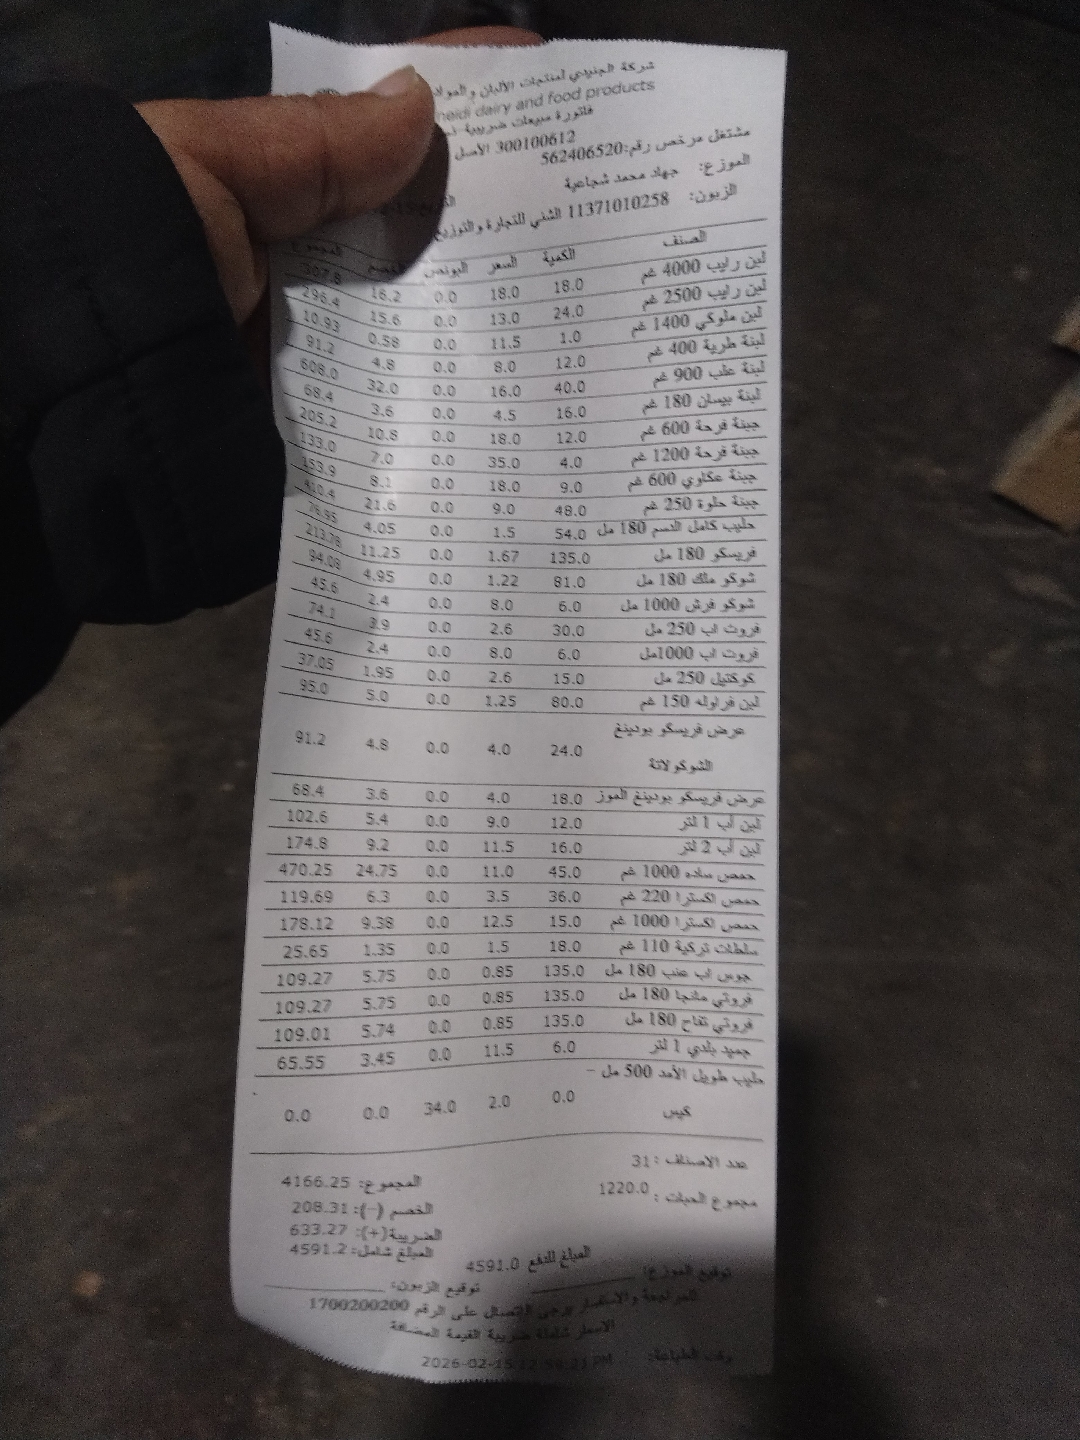 شركة الجنيدي لمنتجات الألبان والمواد
neidi dairy and food products
فاتورة مبيعات ضريبية
300100612 الأصل
مشتغل مرخص رقم:562406520
الموزع: جهاد محمد شجاعية
الزبون: 11371010258 الشني للتجارة والتوزيع
الصنف الكمية السعر البونص الخصم المجموع
لبن رايب 4000 غم 18.0 18.0 0.0 16.2 307.8
لبن رايب 2500 غم 24.0 13.0 0.0 15.6 296.4
لبن ملوكي 1400 غم 1.0 11.5 0.0 0.58 10.93
لبنة طرية 400 غم 12.0 8.0 0.0 4.8 91.2
لبنة علب 900 غم 40.0 16.0 0.0 32.0 608.0
لبنة بيسان 180 غم 16.0 4.5 0.0 3.6 68.4
جبنة فرحة 600 غم 12.0 18.0 0.0 10.8 205.2
جبنة فرحة 1200 غم 4.0 35.0 0.0 7.0 133.0
جبنة عكاوي 600 غم 9.0 18.0 0.0 8.1 153.9
جبنة حلوة 250 غم 48.0 9.0 0.0 21.6 410.4
حليب كامل الدسم 180 مل 54.0 1.5 0.0 4.05 76.95
فريسكو 180 مل 135.0 1.67 0.0 11.25 213.78
شوكو ملك 180 مل 81.0 1.22 0.0 4.95 94.08
شوكو فرش 1000 مل 6.0 8.0 0.0 2.4 45.6
فروت اب 250 مل 30.0 2.6 0.0 3.9 74.1
فروت اب 1000مل 6.0 8.0 0.0 2.4 45.6
كوكتيل 250 مل 15.0 2.6 0.0 1.95 37.05
لبن فراوله 150 غم 80.0 1.25 0.0 5.0 95.0
عرض فريسكو بودينغ
الشوكولاتة 24.0 4.0 0.0 4.8 91.2
عرض فريسكو بودينغ الموز 18.0 4.0 0.0 3.6 68.4
لبن أب 1 لتر 12.0 9.0 0.0 5.4 102.6
لبن أب 2 لتر 16.0 11.5 0.0 9.2 174.8
حمص ساده 1000 غم 45.0 11.0 0.0 24.75 470.25
حمص اكسترا 220 غم 36.0 3.5 0.0 6.3 119.69
حمص اكسترا 1000 غم 15.0 12.5 0.0 9.38 178.12
سلطات تركية 110 غم 18.0 1.5 0.0 1.35 25.65
جوس اب عنب 180 مل 135.0 0.85 0.0 5.75 109.27
فروتي مانجا 180 مل 135.0 0.85 0.0 5.75 109.27
فروتي تفاح 180 مل 135.0 0.85 0.0 5.74 109.01
جميد بلدي 1 لتر 6.0 11.5 0.0 3.45 65.55
حليب طويل الأمد 500 مل -
كيس 0.0 2.0 34.0 0.0 0.0
عدد الاصناف : 31
مجموع الحبات : 1220.0
المجموع: 4166.25
الخصم (-): 208.31
الضريبة(+): 633.27
المبلغ شامل: 4591.2
المبلغ للدفع 4591.0
توقيع الموزع:
توقيع الزبون:
للمراجعة والاستفسار يرجى الاتصال على الرقم 1700200200
الاسعار شاملة ضريبة القيمة المضافة
وقت الطباعة: 2026-02-15 PM